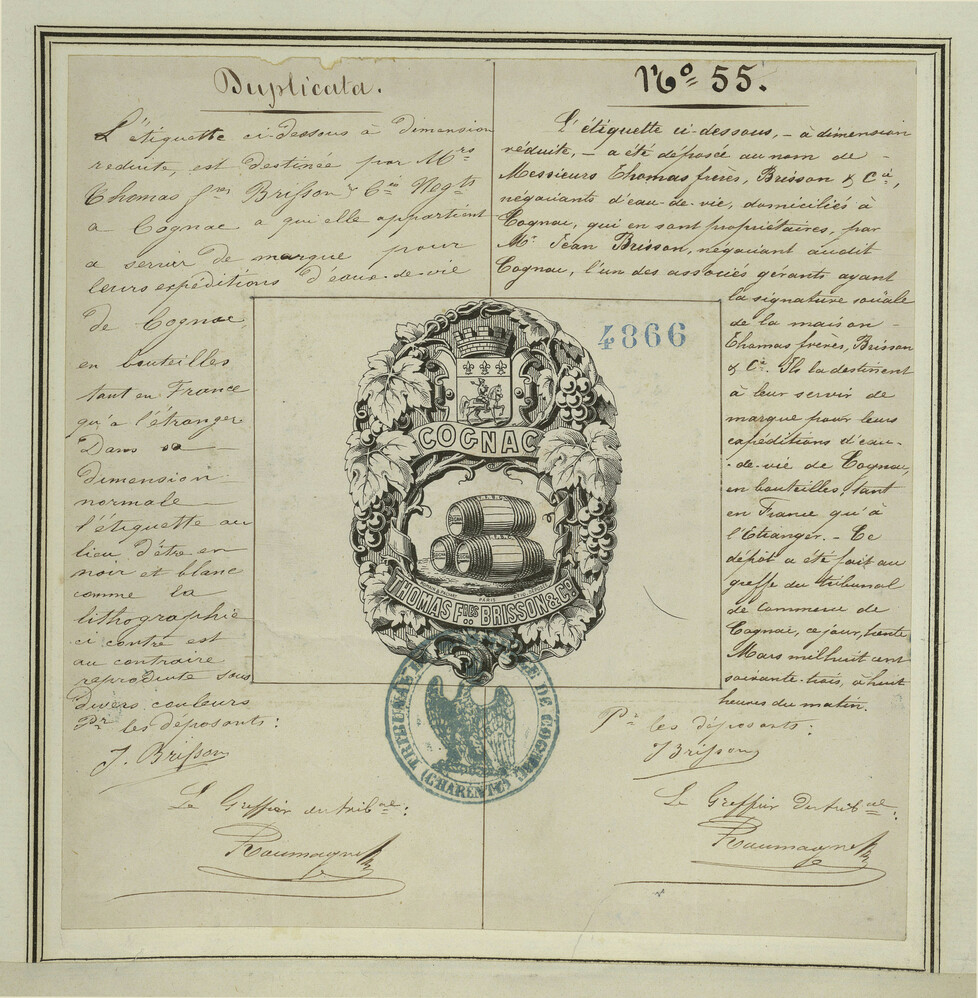 Duplicata.
L'étiquette ci-dessous à dimension
reduite, est destinée par Mrs
Thomas fres Brisson & Cie Negts
a Cognac a qui elle appartient
a servir de marque pour
leurs expéditions d'eau-de-vie
de Cognac,
en bouteilles
tant en France
qu'à l'étranger
Dans sa
dimension
normale
l'étiquette au
lieu d'être en
noir et blanc
comme la
lithographie
ci contre est
au contraire
reproduite sous
divers couleurs
Pr les déposants:
J. Brisson
Le Greffier du tribnal:
No 55.
L'étiquette ci-dessous, - à dimension
réduite, - a été déposée au nom de -
Messieurs Thomas frères, Brisson & Cie,
négociants d'eau-de-vie, domiciliés à
Cognac, qui en sont propriétaires, par
Mr Jean Brisson, négociant audit
Cognac, l'un des associés gérants ayant
la signature sociale
de la maison -
Thomas frères, Brisson
& Cie. Ils la destinent
à leur servir de
marque pour leurs
expéditions d'eau-
-de-vie de Cognac,
en bouteilles, tant
en France qu'à
l'Etranger. - Ce
dépôt a été fait au
greffe du tribunal
de commerce de
Cognac, ce jour, trente
Mars mil huit cent
soixante-trois, à huit
heures du matin.
Pr les déposants:
J Brisson
Le Greffier du tribnal:
4866
COGNAC
THOMAS FRES BRISSON & CO
TRIBUNAL DE COGNAC
(CHARENTE)